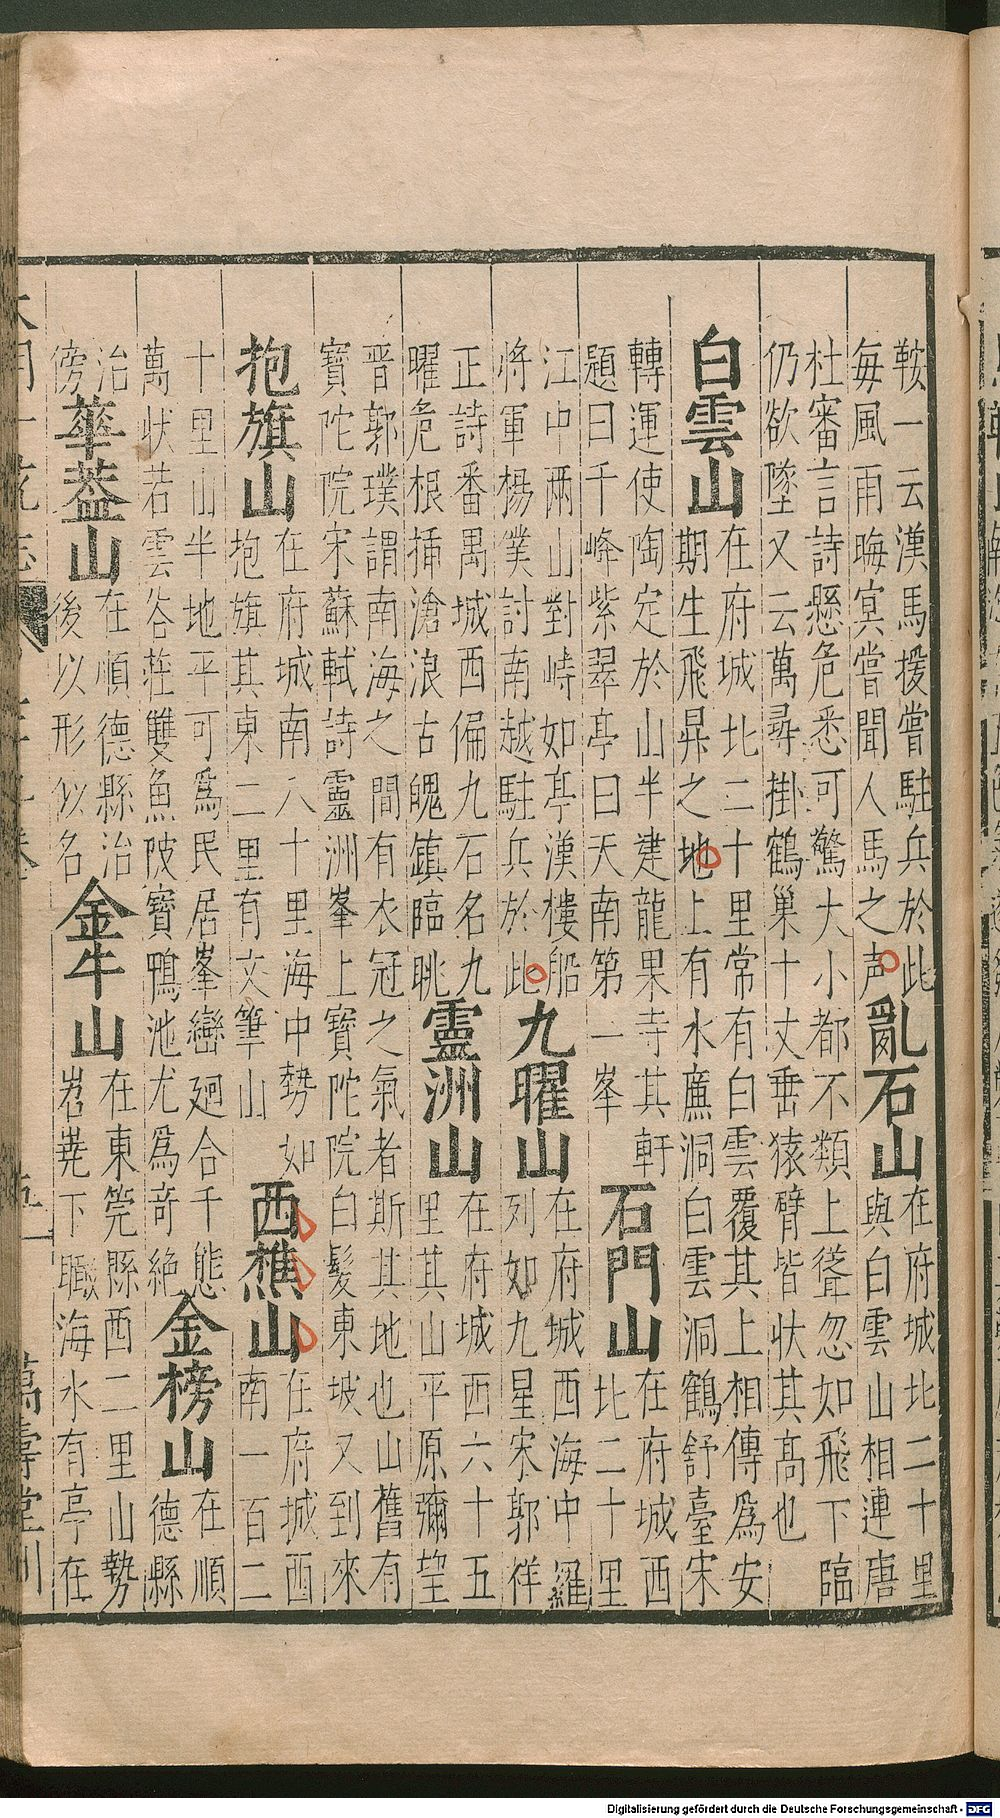 鞍一云漢馬援嘗駐兵於此
每風雨晦冥嘗聞人馬之声
亂石山
在府城北二十里
與白雲山相連唐
杜審言詩懸危悉可驚大小都不類上聳忽如飛下臨
仍欲墜又云萬尋掛鶴巢十丈垂猿臂皆状其高也
白雲山
在府城北二十里常有白雲覆其上相傳爲安
期生飛昇之地上有水簾洞白雲洞鶴舒臺宋
轉運使陶定於山半建龍果寺其軒
題曰千峰紫翠亭曰天南第一峯
石門山
在府城西
北二十里
江中兩山對峙如亭漢樓船
將軍楊僕討南越駐兵於此
九曜山
在府城西海中羅
列如九星宋郭祥
正詩番禺城西偏九石名九
曜危根揷滄浪古魄鎮臨眺
靈洲山
在府城西六十五
里其山平原彌望
晋郭璞謂南海之間有衣冠之氣者斯其地也山舊有
寶陀院宋蘇軾詩靈洲峯上寶陀院白髮東坡又到來
抱旗山
在府城南八十里海中勢如
抱旗其東二里有文筆山
西樵山
在府城西
南一百二
十里山半地平可爲民居峯巒廻合千態
萬状若雲谷荘雙魚陂寶鴨池尤爲奇絶
金榜山
在順
德縣
治
傍
華葢山
在順德縣治
後以形似名
金牛山
在東莞縣西二里山勢
岧嶤下瞰海水有亭在
萬壽堂刊
Digitalisierung gefördert durch die Deutsche Forschungsgemeinschaft - DFG